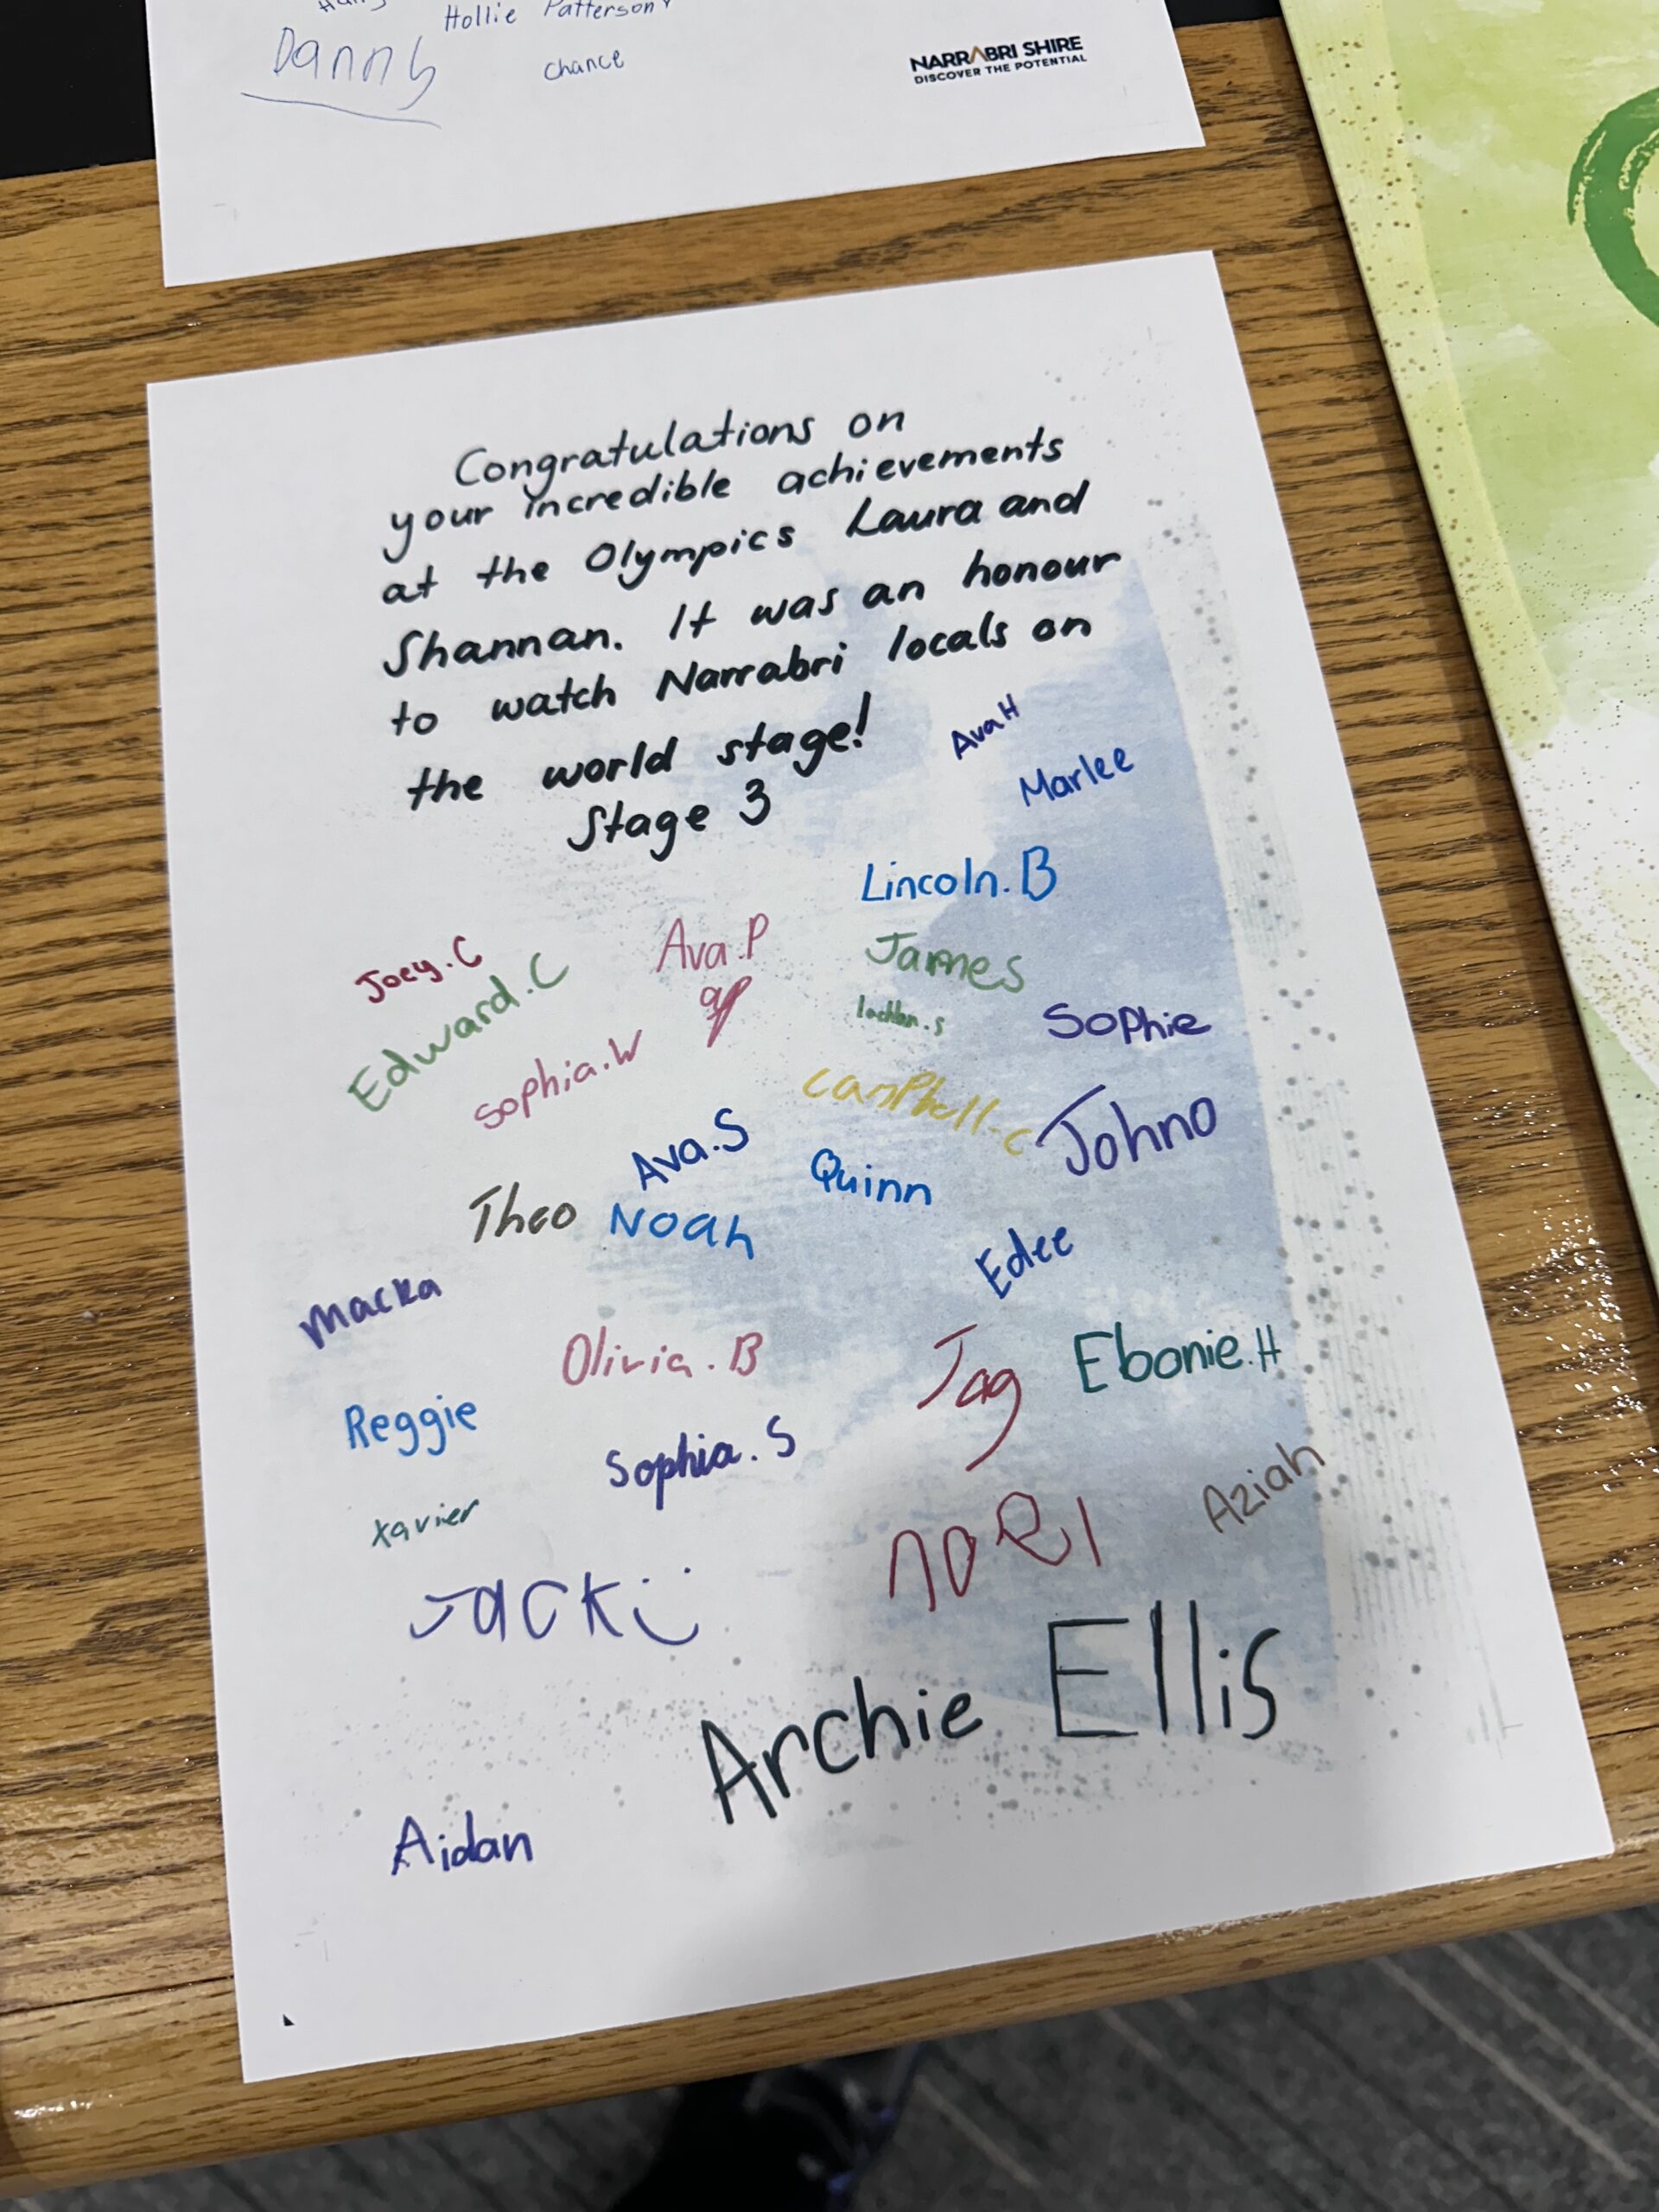 Hollie Patterson
Danny
Chance
NARRABRI SHIRE
DISCOVER THE POTENTIAL
Congratulations on
your incredible achievements
at the Olympics Laura and
Shannan. It was an honour
to watch Narrabri locals on
the world stage!
Stage 3
Ava H
Marlee
Lincoln. B
Joey. C
Edward. C
Ava. P
James
lachlan. s
Sophie
Sophia. W
CamPbell-C
Johno
Ava. S
Quinn
Theo
Noah
Edee
Macka
Olivia. B
Jag
Ebonie. H
Reggie
Sophia. S
Xavier
noel
Aziah
Jack
Archie Ellis
Aidan